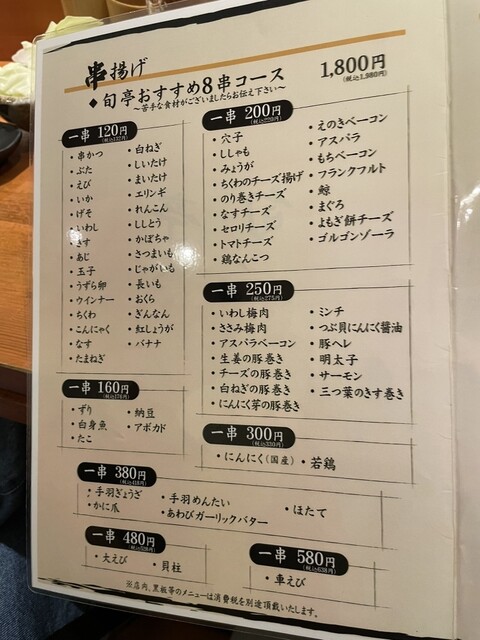 串揚げ
◆旬亭おすすめ8串コース 1,800円
(税込1,980円)
〜苦手な食材がございましたらお伝え下さい〜
一串 120円
(税込132円)
・串かつ
・ぶた
・えび
・いか
・げそ
・いわし
・きす
・あじ
・玉子
・うずら卵
・ウインナー
・ちくわ
・こんにゃく
・なす
・たまねぎ
・白ねぎ
・しいたけ
・まいたけ
・エリンギ
・れんこん
・ししとう
・かぼちゃ
・さつまいも
・じゃがいも
・長いも
・おくら
・ぎんなん
・紅しょうが
・バナナ
一串 160円
(税込176円)
・ずり
・白身魚
・たこ
・納豆
・アボカド
一串 200円
(税込220円)
・穴子
・ししゃも
・みょうが
・ちくわのチーズ揚げ
・のり巻きチーズ
・なすチーズ
・セロリチーズ
・トマトチーズ
・鶏なんこつ
・えのきベーコン
・アスパラ
・もちベーコン
・フランクフルト
・鯨
・まぐろ
・よもぎ餅チーズ
・ゴルゴンゾーラ
一串 250円
(税込275円)
・いわし梅肉
・ささみ梅肉
・アスパラベーコン
・生姜の豚巻き
・チーズの豚巻き
・白ねぎの豚巻き
・にんにく芽の豚巻き
・ミンチ
・つぶ貝にんにく醤油
・豚ヘレ
・明太子
・サーモン
・三つ葉のきす巻き
一串 300円
(税込330円)
・にんにく(国産)・若鶏
一串 380円
(税込418円)
・手羽ぎょうざ
・かに爪
・手羽めんたい
・あわびガーリックバター
・ほたて
一串 480円
(税込528円)
・大えび ・貝柱
一串 580円
(税込638円)
・車えび
※店内、黒板等のメニューは消費税を別途頂戴いたします。